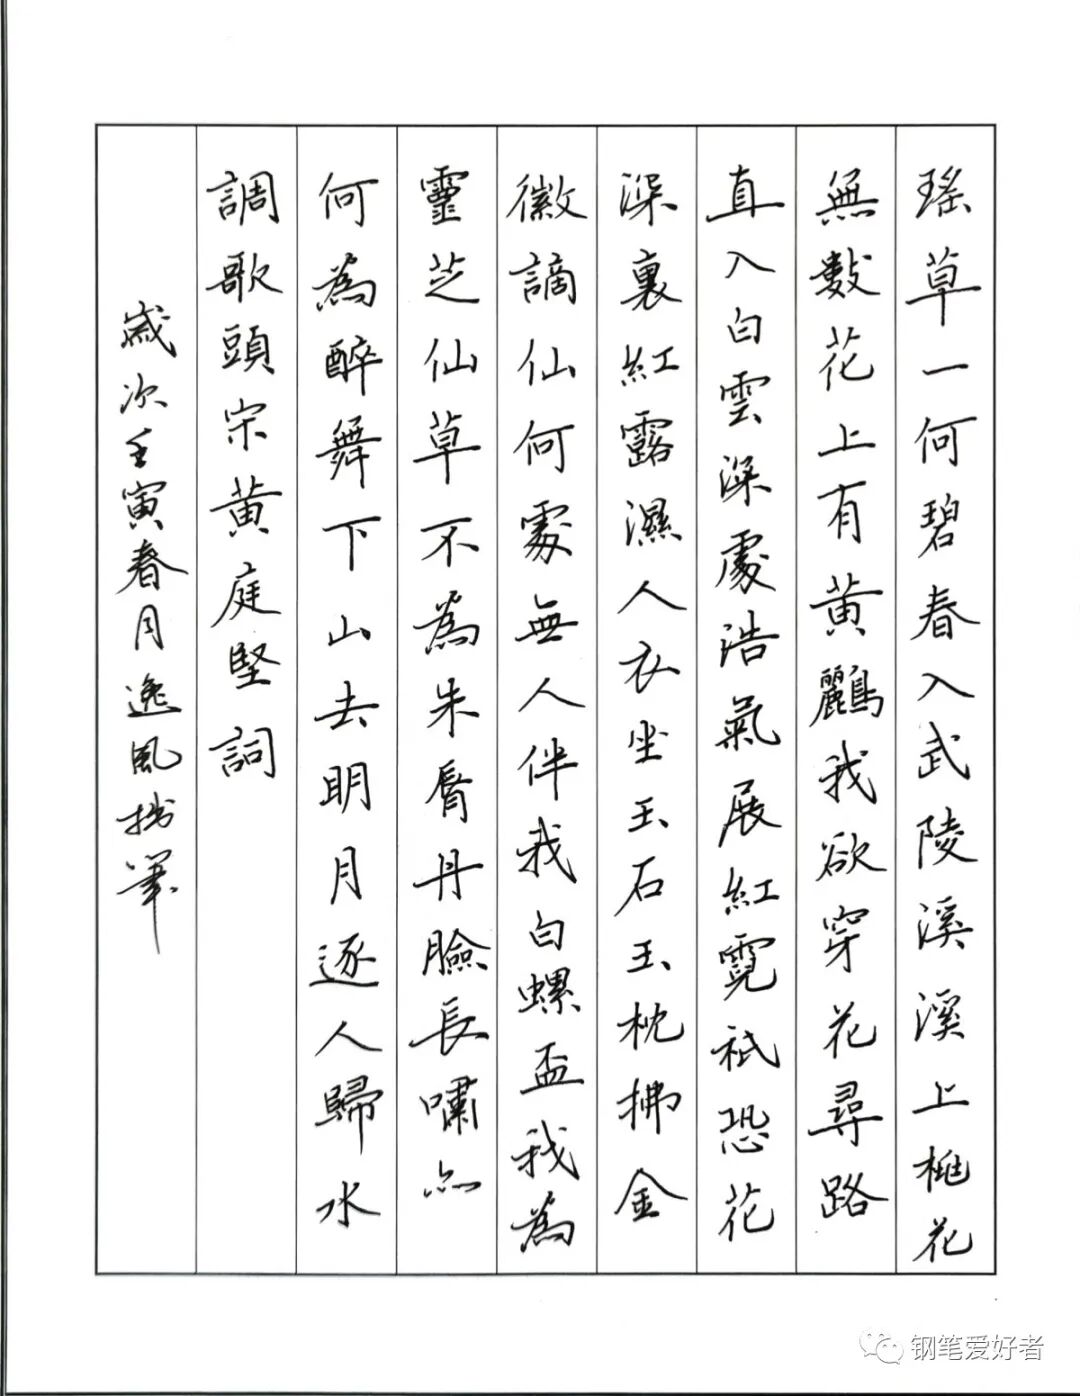 瑤草一何碧春入武陵溪溪上桃花
無數花上有黃鸝我欲穿花尋路
直入白雲深處浩氣展紅霓祇恐花
深裏紅露濕人衣坐玉石玉枕拂金
徽謫仙何處無人伴我白螺盃我為
靈芝仙草不為朱脣丹臉長嘯亦
何為醉舞下山去明月逐人歸水
調歌頭宋黃庭堅詞
歲次壬寅春月逸風拙筆
钢笔爱好者